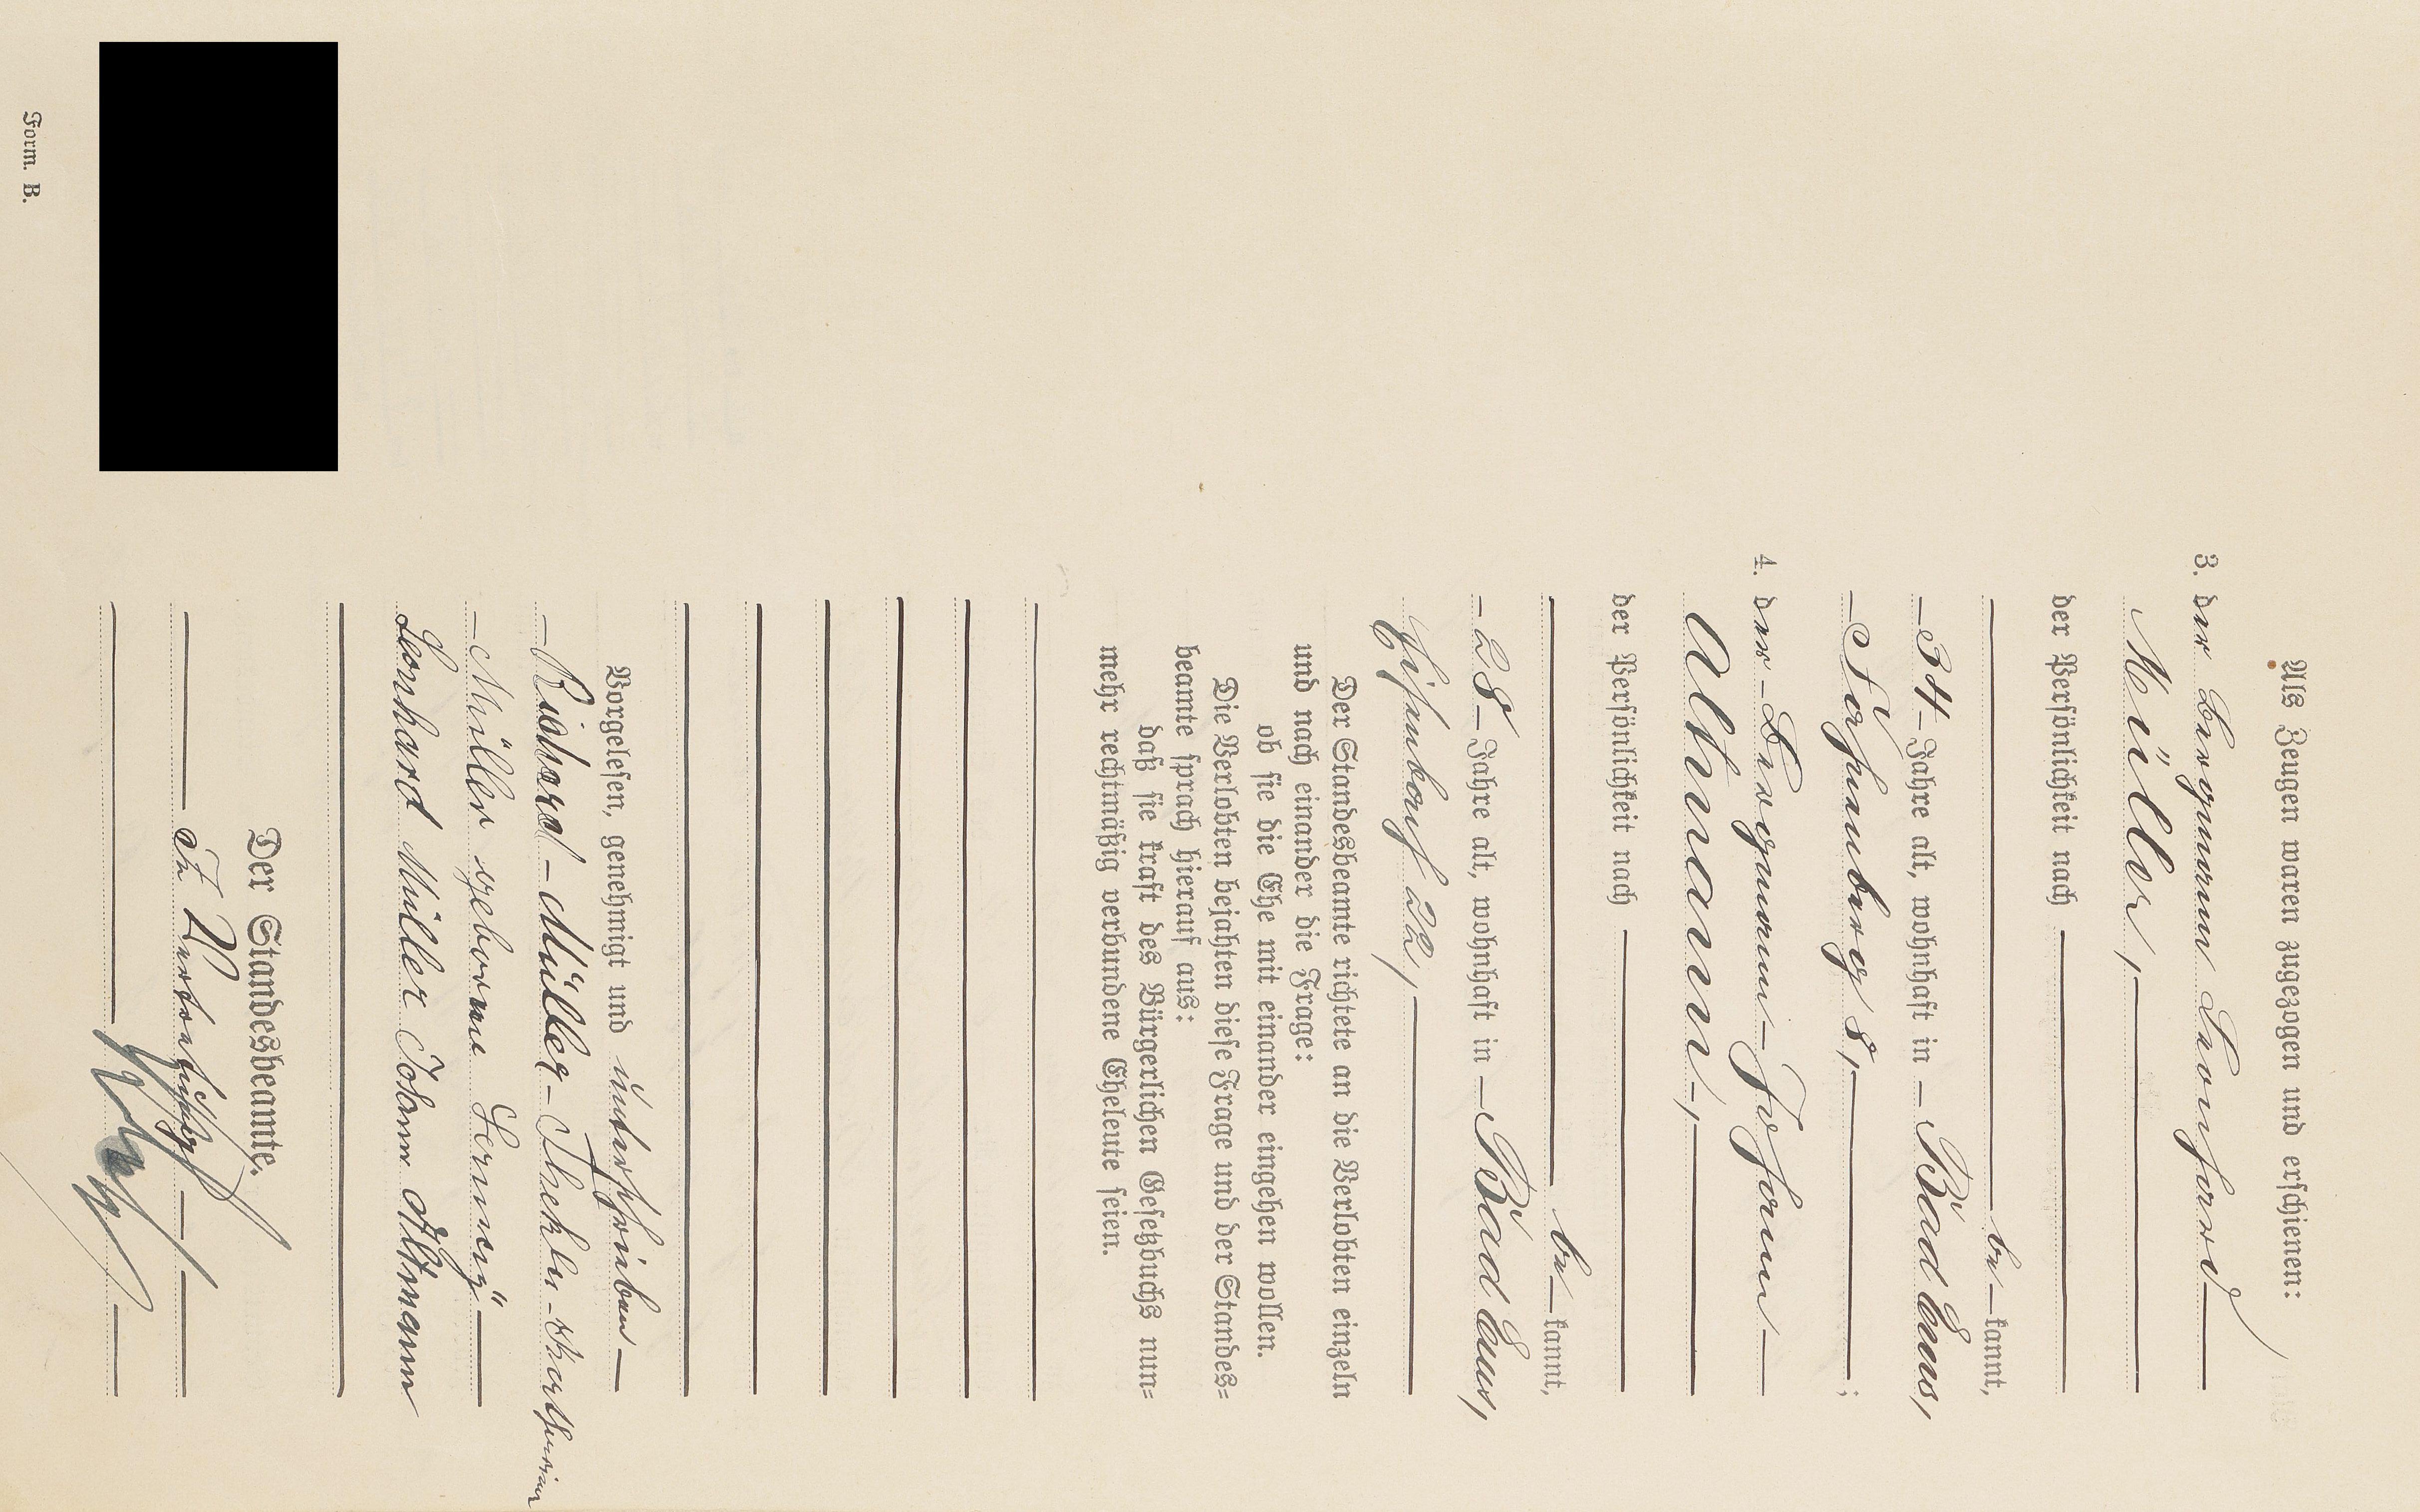 Als Zeugen waren zugezogen und erschienen:
3. der Bergmann Leonhard
Müller,
der Persönlichkeit nach
be kannt,
34 Jahre alt, wohnhaft in Bad Ems,
8,
4. der Bergmann Johann
Altmann,
der Persönlichkeit nach
be kannt,
28 Jahre alt, wohnhaft in Bad Ems,
22,
Der Standesbeamte richtete an die Verlobten einzeln
und nach einander die Frage:
ob sie die Ehe mit einander eingehen wollen.
Die Verlobten bejahten diese Frage und der Standes-
beamte sprach hierauf aus:
daß sie kraft des Bürgerlichen Gesetzbuchs nun-
mehr rechtmäßig verbundene Eheleute seien.
Vorgelesen, genehmigt und unterschrieben
Richard Müller Thekla Katharina
Müller geborene
Leonhard Müller Johann Altmann
Der Standesbeamte.
In Vertretung
Form. B.